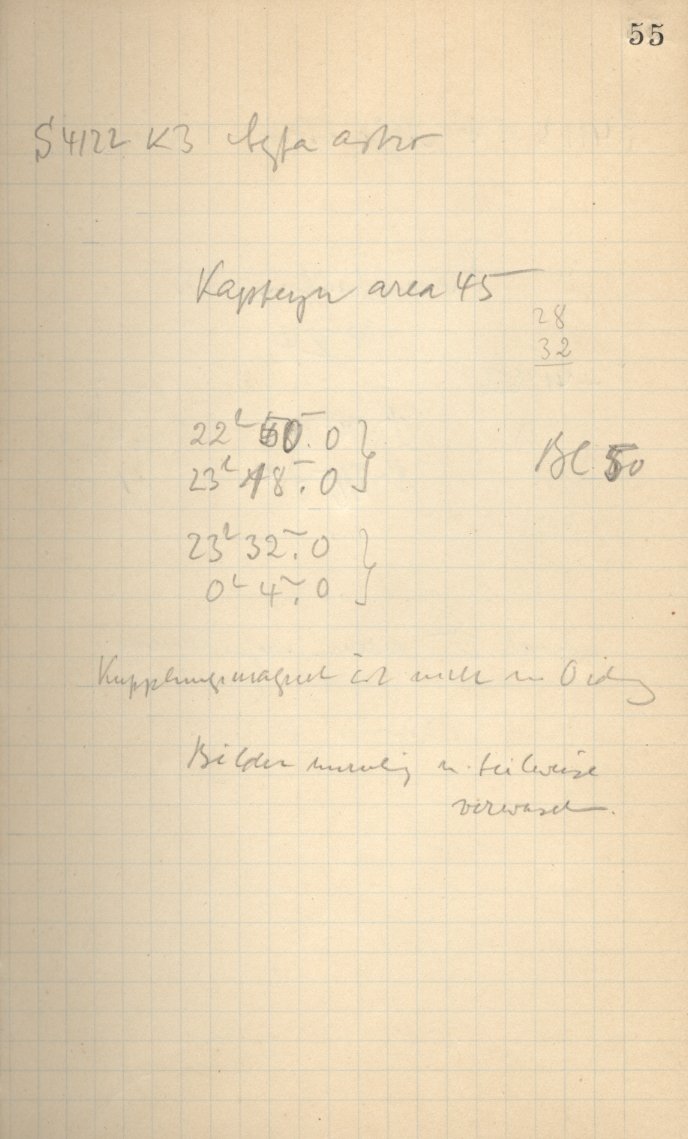 55
S 4122 K3 Agfa astro
Kapteyn area 45
28
32
22h 50m.0 }
23h 18m.0 } Bl 50
23h 32m.0 }
0h 4m.0 }
Kupplungsmagnet ist nicht in Ordng
Bilder unruhig u. teilweise
verwasch.